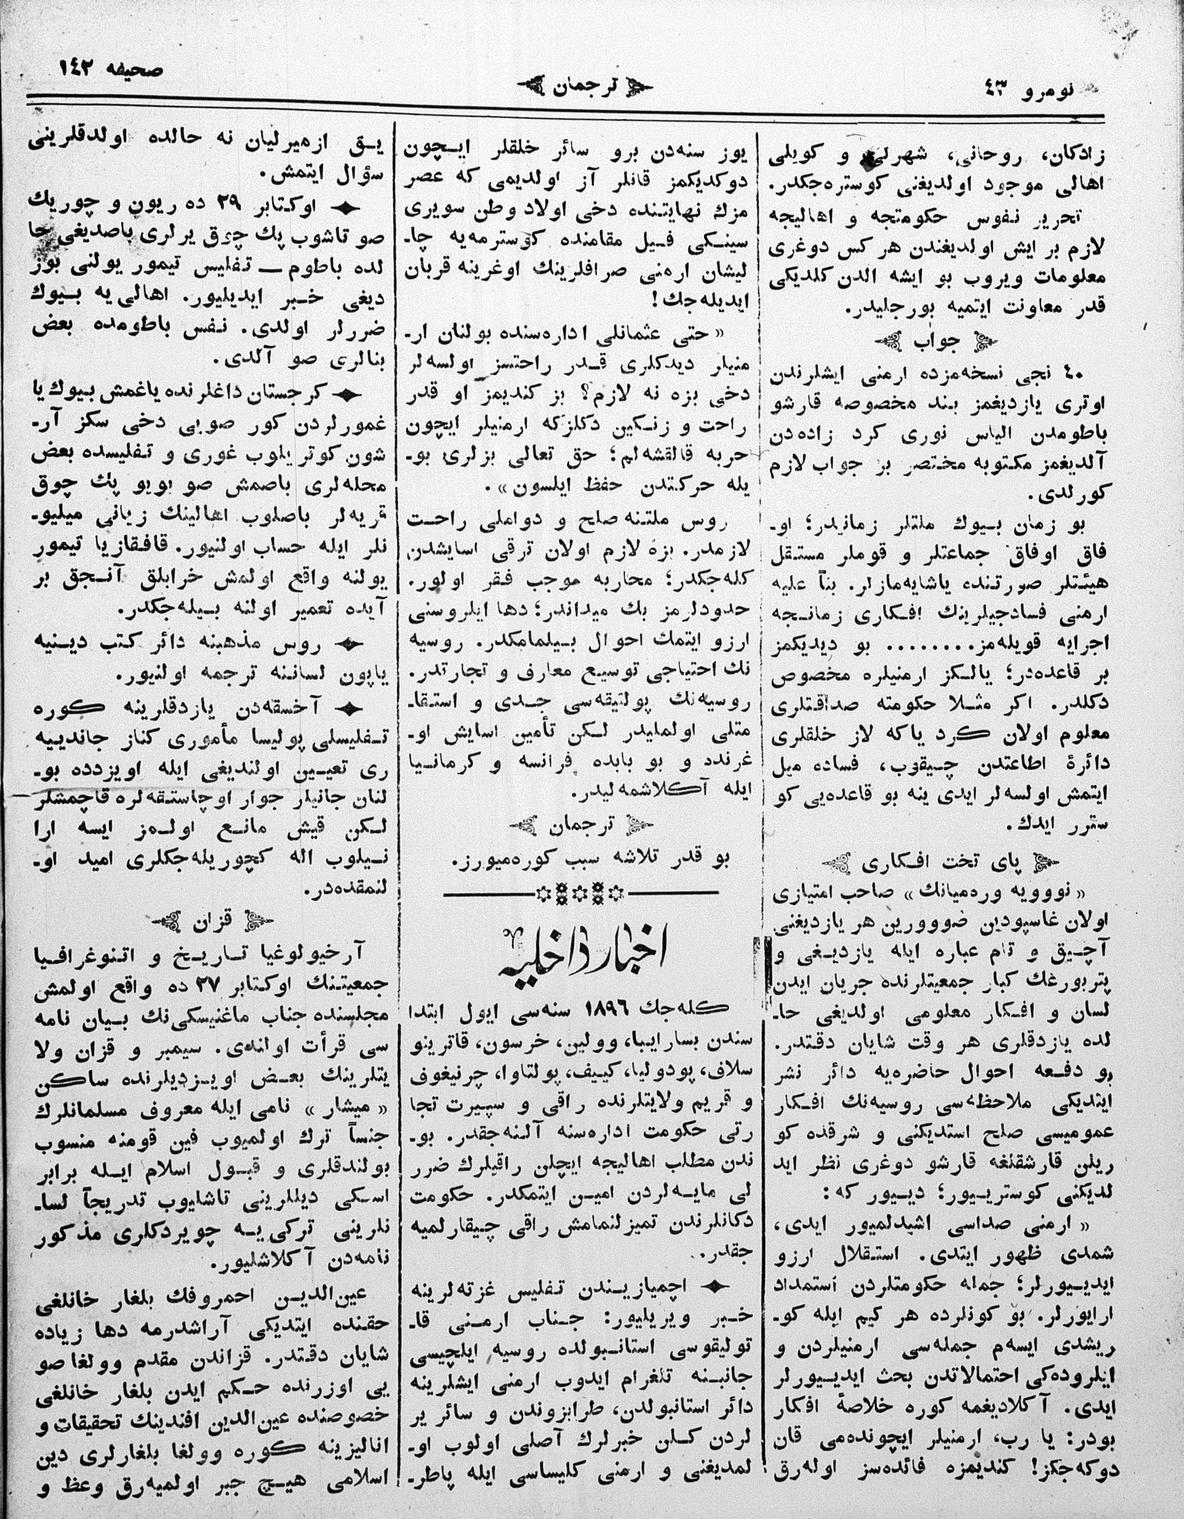 نومرو ٤٣
ترجمان
صحیفه ١٤٢
زادكان، روحانی، شهرلی و كویلی
اهالی موجود اولدیغنی كوسترەجكدر.
تحریر نفوس حكومتجه و اهالیجه
لازم بر ایش اولدیغندن هر كس دوغری
معلومات ویروب بو ایشه الدن كلدیكی
قدر معاونت ایتمیه بورجلیدر.
جواب
٤٠ نجی نسخه‌مزده ارمنی ایشلرندن
اوتری یازدیغمز بند مخصوصه قارشو
باطومدن الیاس نوری كرد زاده‌دن
آلدیغمز مكتوبه مختصر بر جواب لازم
كورلدی.
بو زمان بیوك ملتلر زمانیدر؛ او-
فاق اوفاق جماعتلر و قوملر مستقل
هیئتلر صورتنده یاشایه‌مازلر. بناً علیه
ارمنی فسادجیلرینك افكاری زمانجه
اجرایه قویله‌مز........ بو دیدیكمز
بر قاعده‌در؛ یالكز ارمنیلره مخصوص
دكلدر. اكر مثلا حكومته صداقتلری
معلوم اولان كرد یاكه لاز خلقلری
دائرهٔ اطاعتدن چیقوب، فساده میل
ایتمش اولسه‌لر ایدی ینه بو قاعده‌یی كو
سترر ایدك.
پای تخت افكاری
« نوویه وره‌میانك » صاحب امتیازی
اولان غاسپودین صووورین هر یازدیغنی
آچیق و تام عباره ایله یازدیغی و
پتربورغك كبار جمعیتلرنده جریان ایدن
لسان و افكار معلومی اولدیغی حا-
لده یازدقلری هر وقت شایان دقتدر.
بو دفعه احوال حاضره‌یه دائر نشر
ایتدیكی ملاحظه‌سی روسیه‌نك افكار
عمومیسی صلح استدیكنی و شرقده كو
ریلن قارشقلغه قارشو دوغری نظر اید
لدیكنی كوستریور؛ دییور كه :
« ارمنی صداسی اشیدلمیور ایدی،
شمدی ظهور ایتدی. استقلال ارزو
ایدییورلر؛ جمله حكومتلردن استمداد
ارایورلر. بو كونلرده هر كیم ایله كو-
ریشدی ایسه‌م جمله‌سی ارمنیلردن و
ایلروده‌كی احتمالاتدن بحث ایدییورلر
ایدی. آكلادیغمه كوره خلاصهٔ افكار
بودر: یا رب، ارمنیلر ایچونده‌می قان
دوكه‌جكز! كندیمزه فائده‌سز اوله‌رق
یوز سنه‌دن برو سائر خلقلر ایچون
دوكدیكمز قانلر آز اولدیمی كه عصر
مزك نهایتنده دخی اولاد وطن سویری
سینكی فیل مقامنده كوسترمه‌یه چا-
لیشان ارمنی صرافلرینك اوغرینه قربان
ایدیله‌جك!
« حتی عثمانلی اداره‌سنده بولنان ار-
منیلر دیدكلری قدر راحتسز اولسه‌لر
دخی بزه نه لازم؟ بز كندیمز او قدر
راحت و زنكین دكلزكه ارمنیلر ایچون
حربه قالقشه‌لم؛ حق تعالی بزلری بو-
یله حركتدن حفظ ایلسون ».
روس ملتنه صلح و دواملی راحت
لازمدر. بزه لازم اولان ترقی اسایشدن
كله‌جكدر؛ محاربه موجب فقر اولور.
حدودلرمز بك میداندر؛ دها ایلروسنی
ارزو ایتمك احوال بیلمامكدر. روسیه
نك احتیاجی توسیع معارف و تجارتدر.
روسیه‌نك پولتیقه‌سی جدی و استقا-
متلی اولملیدر لكن تأمین اسایش او-
غرندد و بو بابده فرانسه و كرمانیا
ایله آكلاشمه‌لیدر.
ترجمان
بو قدر تلاشه سبب كوره‌میورز.
اخبار داخلیه
كله‌جك ١٨٩٦ سنه‌سی ایول ابتدا
سندن بسارابیا، وولین، خرسون، قاترینو
سلاف، پودولیا، كییف، پولتاوا، چرنیغوف
و قریم ولایتلرنده راقی و سپیرت تجا
رتی حكومت اداره‌سنه آلنه‌جقدر. بو-
ندن مطلب اهالیجه ایچلن راقیلرك ضرر
لی مایه‌لردن امین ایتمكدر. حكومت
دكانلرندن تمیزلنمامش راقی چیقارلمیه
جقدر.
اچمیازیندن تفلیس غزته‌لرینه
خبر ویریلیور: جناب ارمنی قا-
تولیقوسی استانبولده روسیه ایلچیسی
جانبنه تلغرام ایدوب ارمنی ایشلرینه
دائر استانبولدن، طرابزوندن و سائر یر
لردن كلن خبرلرك آصلی اولوب او-
لمدیغنی و ارمنی كلیساسی ایله پاطر-
یق ازمیرلیان نه حالده اولدقلرینی
سؤال ایتمش.
اوكتابر ٢٩ ده ریون و چوریك
صو تاشوب پك چوق یرلری باصدیغی حا
لده باطوم — تفلیس تیمور یولنی بوز
دیغی خبر ایدیلیور. اهالی‌یه بیوك
ضررلر اولدی. نفس باطومده بعض
بنالری صو آلدی.
كرجستان داغلرنده یاغمش بیوك یا
غمورلردن كور صویی دخی سكز آر-
شون كوتریلوب غوری و تفلیسده بعض
محله‌لری باصمش صو بویو پك چوق
قریه‌لر باصلوب اهالینك زیانی میلیو-
نلر ایله حساب اولنیور. قافقازیا تیمور
یولنه واقع اولمش خرابلق آنجق بر
آیده تعمیر اولنه بیله‌جكدر.
روس مذهبنه دائر كتب دینیه
یاپون لساننه ترجمه اولنیور.
آخسقه‌دن یازدقلرینه كوره
تفلیسلی پولیسا مأموری كناز جاندییه
ری تعیین اولندیغی ایله اویزدده بو-
لنان جانیلر جوار اوچاستقه‌لره قاچمشلر
لكن قیش مانع اولمز ایسه ارا
نیلوب اله كچوریله‌جكلری امید او-
لنمقده‌در.
قزان
آرخیولوغیا تاریخ و اتنوغرافیا
جمعیتنك اوكتابر ٢٧ ده واقع اولمش
مجلسنده جناب ماغنیسكی‌نك بیان نامه
سی قرأت اولندی. سیمبر و قزان ولا
یتلرینك بعض اویزدیلرنده ساكن
« میشار » نامی ایله معروف مسلمانلرك
جنساً ترك اولمیوب فین قومنه منسوب
بولندقلری و قبول اسلام ایله برابر
اسكی دیللرینی تاشلیوب تدریجاً لسا-
نلرینی تركی‌یه چویردكلری مذكور
نامه‌دن آكلاشلیور.
عین‌الدین احمروفك بلغار خانلغی
حقنده ایتدیكی آراشدرمه دها زیاده
شایان دقتدر. قزاندن مقدم وولغا صو
یی اوزرنده حكم ایدن بلغار خانلغی
خصوصنده عین‌الدین افندینك تحقیقات و
انالیزینه كوره وولغا بلغارلری دین
اسلامی هیچ جبر اولمیه‌رق وعظ و